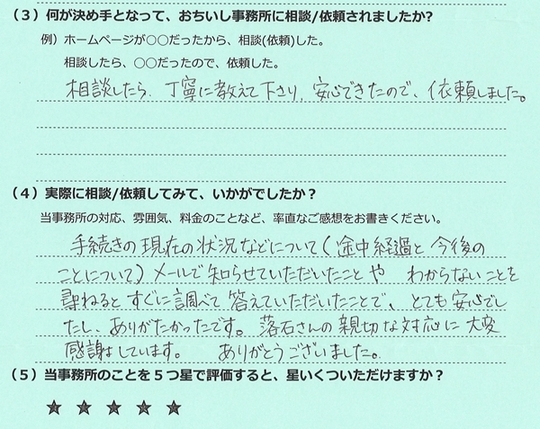 （３）何が決め手となって、おちいし事務所に相談/依頼されましたか?
例）ホームページが○○だったから、相談(依頼)した。
相談したら、○○だったので、依頼した。
相談したら、丁寧に教えて下さり、安心できたので、依頼しました。
（４）実際に相談/依頼してみて、いかがでしたか？
当事務所の対応、雰囲気、料金のことなど、率直なご感想をお書きください。
手続きの現在の状況などについて(途中経過と今後の
ことについて)メールで知らせていただいたことや わからないことを
尋ねるとすぐに調べて答えていただいたことで、とても安心でし
たし、ありがたかったです。落石さんの親切な対応に大変
感謝しています。 ありがとうございました。
（５）当事務所のことを５つ星で評価すると、星いくついただけますか？
★ ★ ★ ★ ★